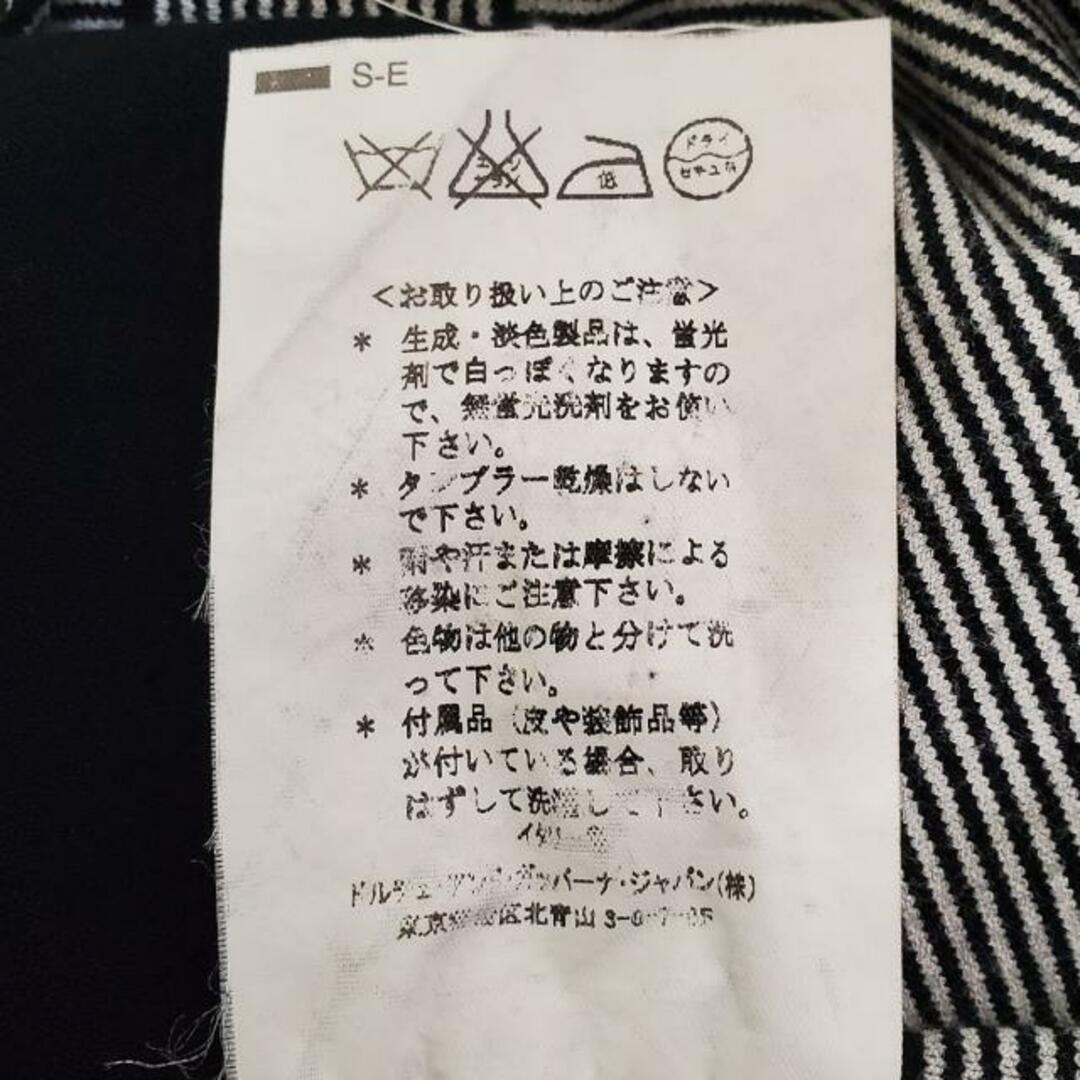 S-E
エンソ
サラシ
低
ドライ
セキユ系
＜お取り扱い上のご注意＞
* 生成・淡色製品は、蛍光
剤で白っぽくなりますの
で、無蛍光洗剤をお使い
下さい。
* タンブラー乾燥はしない
で下さい。
* 雨や汗または摩擦による
移染にご注意下さい。
* 色物は他の物と分けて洗
って下さい。
* 付属品（皮や装飾品等）
が付いている場合、取り
はずして洗濯して下さい。
イタリー製
ドルチェ・アンド・ガッバーナ・ジャパン(株)
東京都港区北青山